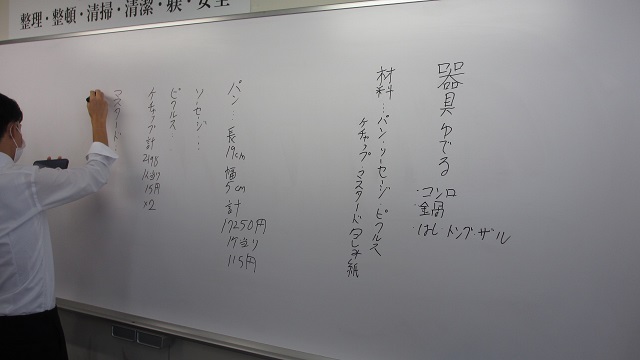 整理・整頓・清掃・清潔・躾・安全
器具 ゆでる
・コンロ
・金鍋
・はし・トング・ザル
材料…パン・ソーセージ・ピクルス
ケチャップ・マスタード
紙
パン…長19cm 幅5cm 計
17250円
1ケ当り
115円
ソーセージ…
ピクルス…
ケチャップ 計
2198
1ケ当り
15円
×2
マスタード